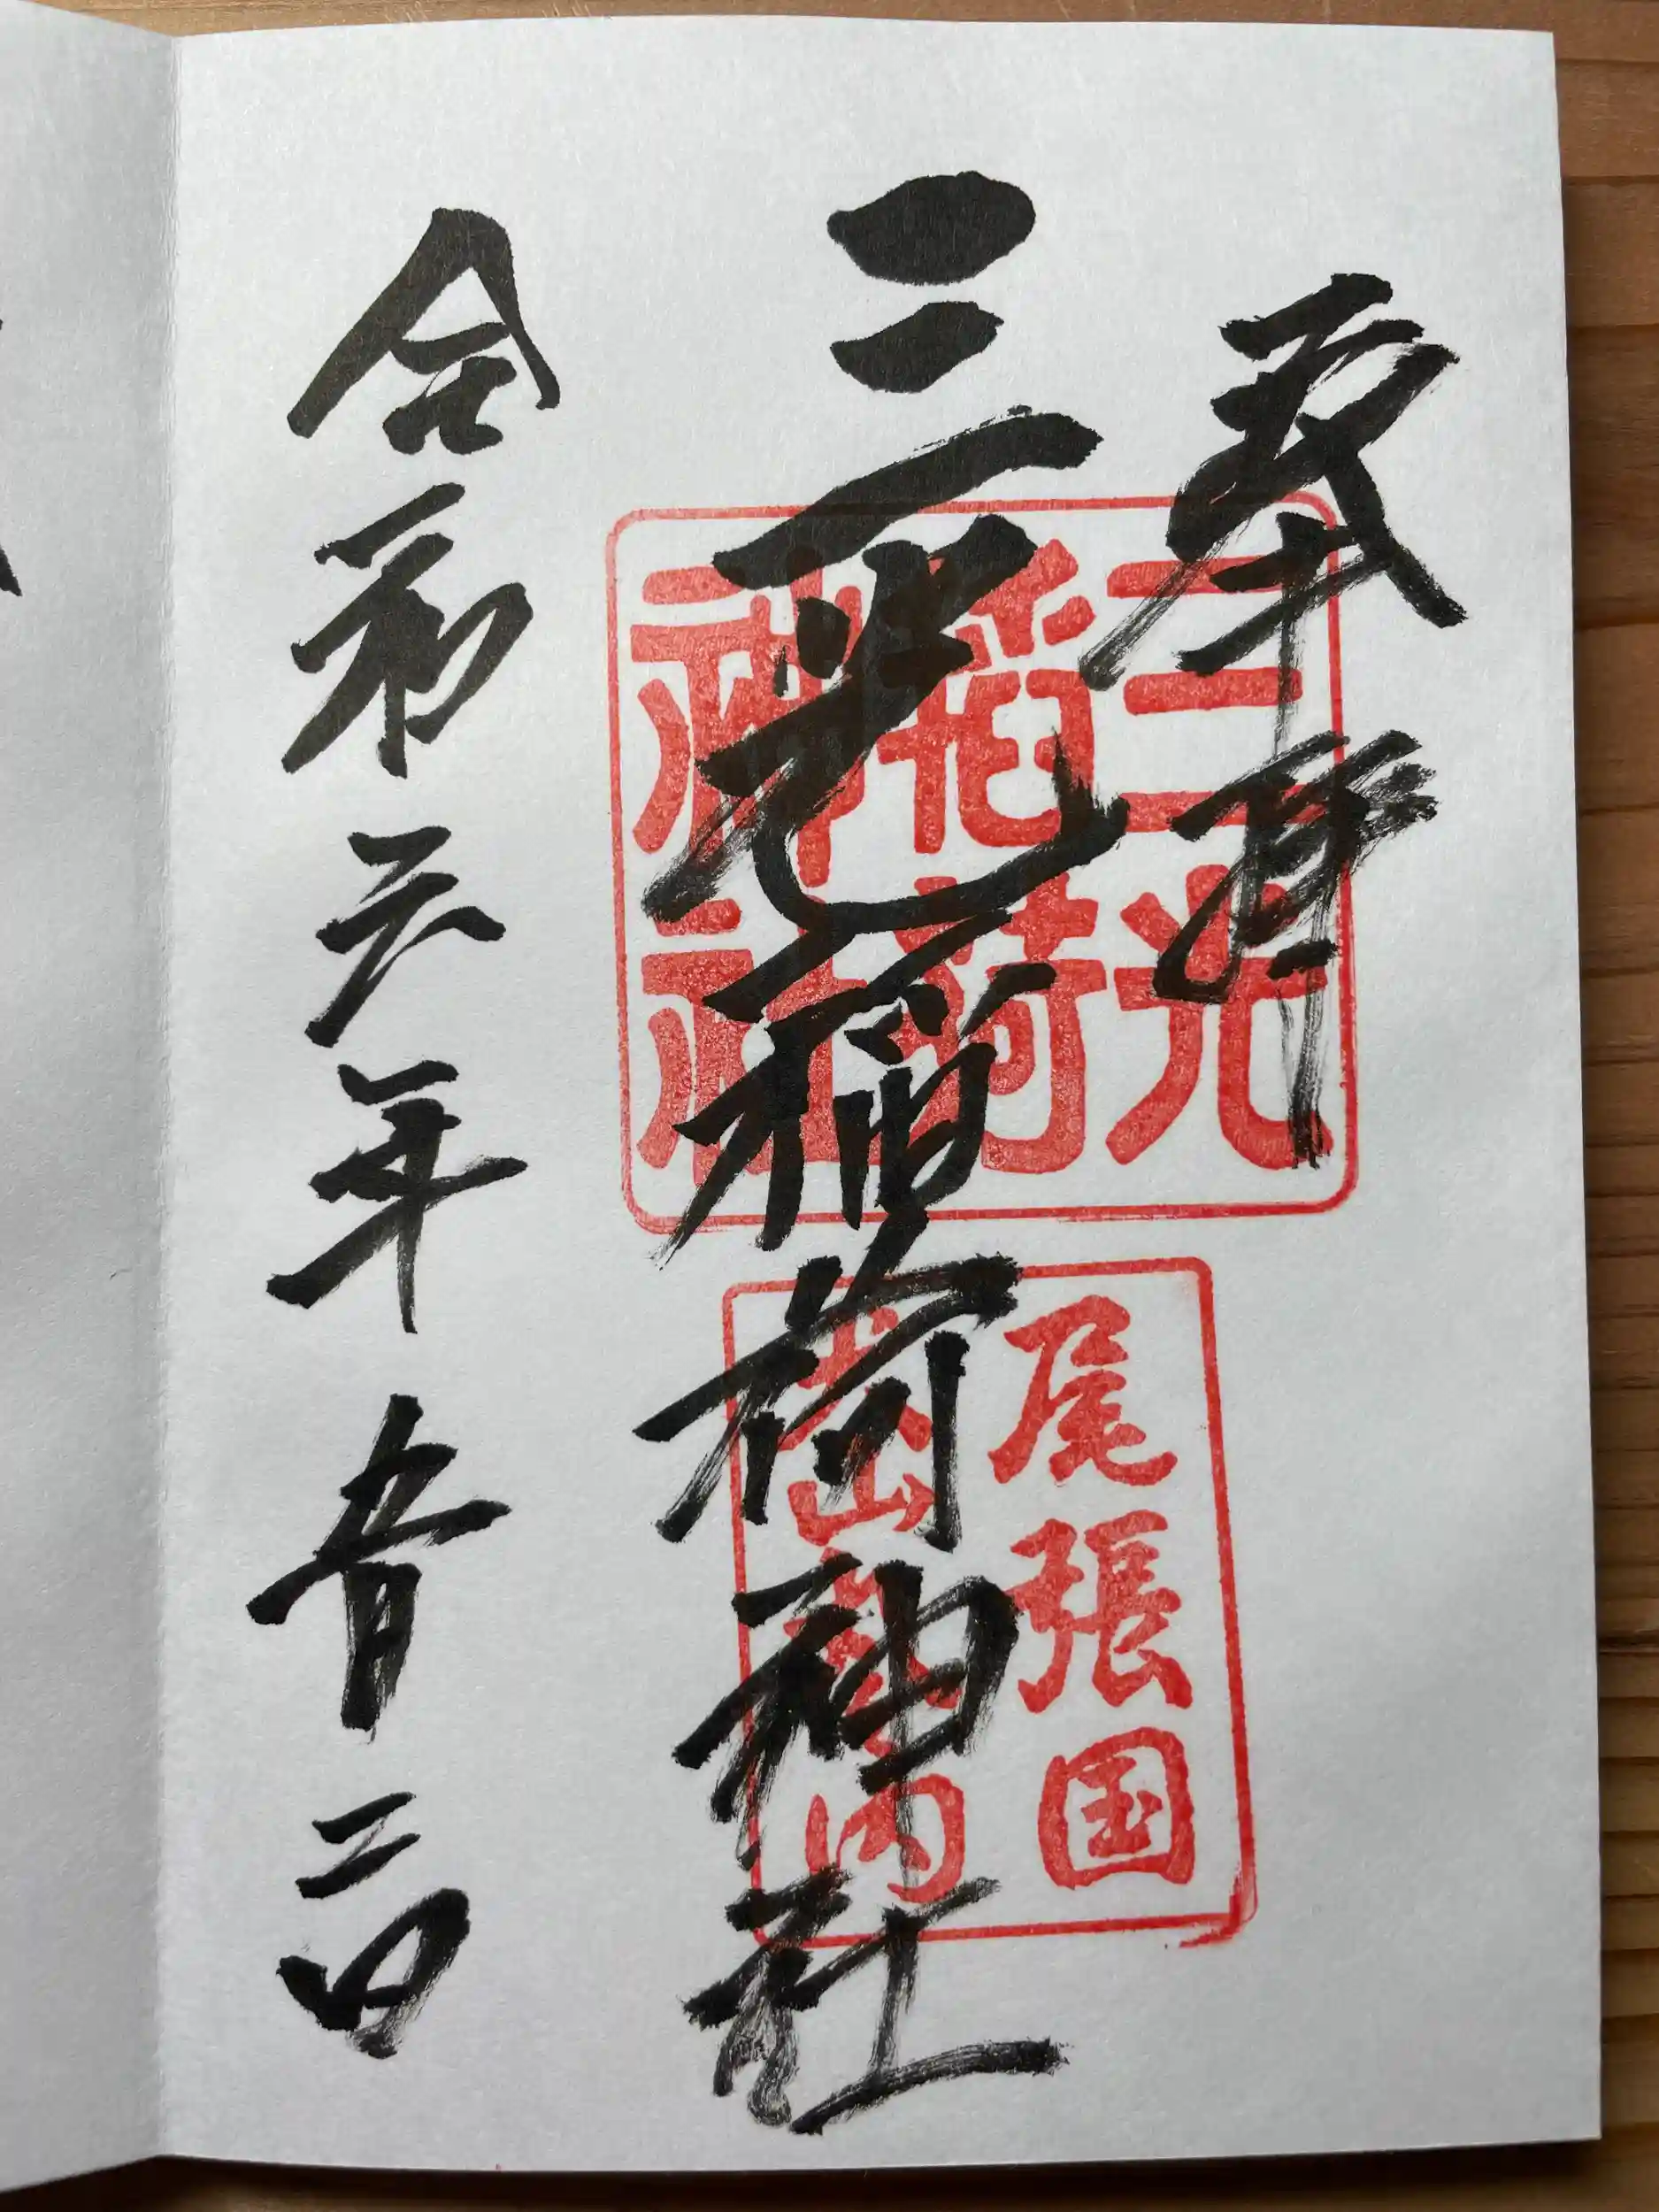 奉拝
三光稲荷神社
令和六年五月二日
三光
稲荷
神社
尾張国
犬山城内